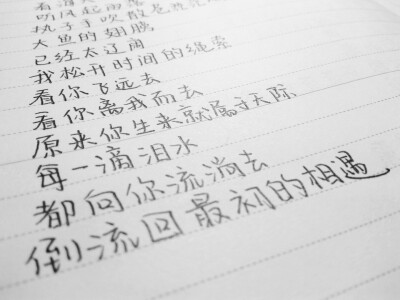 听风起雨落
执子手吹散苍茫
大鱼的翅膀
已经太辽阔
我松开时间的绳索
看你飞远去
看你离我而去
原来你生来就属于天际
每一滴泪水
都向你流淌去
倒流回最初的相遇